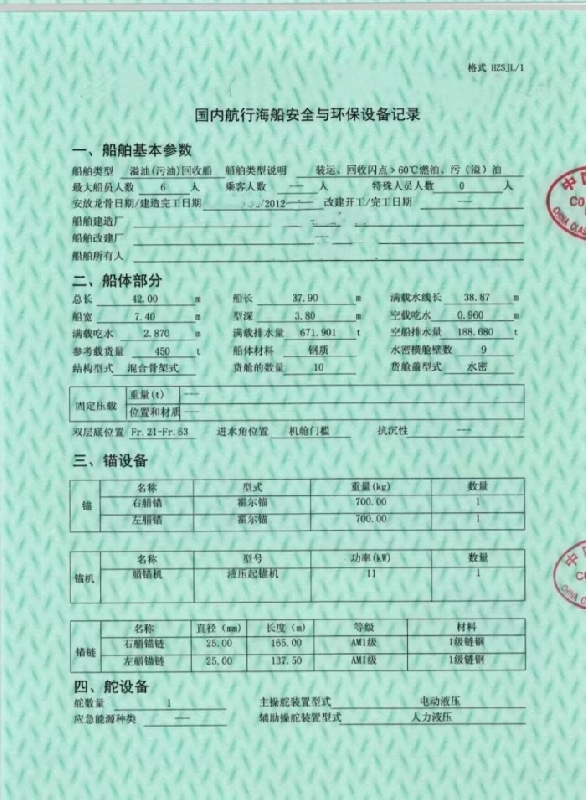 格式 HZSJL/1
国内航行海船安全与环保设备记录
一、船舶基本参数
船舶类型 溢油(污油)回收船 船舶类型说明 装运、回收闪点>60℃燃油、污(溢)油
最大船员人数 6 人 乘客人数 --- 人 特殊人员人数 0 人
安放龙骨日期/建造完工日期 /2012 改建开工/完工日期 ---
船舶建造厂
船舶改建厂
船舶所有人
二、船体部分
总长 42.00 m 船长 37.90 m 满载水线长 38.87 m
船宽 7.40 m 型深 3.80 m 空载吃水 0.960 m
满载吃水 2.870 m 满载排水量 671.901 t 空船排水量 188.680 t
参考载货量 450 t 船体材料 钢质 水密横舱壁数 9
结构型式 混合骨架式 货舱的数量 10 货舱盖型式 水密
固定压载 重量(t) ---
位置和材质 ---
双层底位置 Fr.21-Fr.63 进水角位置 机舱门槛 抗沉性 ---
三、锚设备
锚 名称 型式 重量(kg) 数量
右艏锚 霍尔锚 700.00 1
左艏锚 霍尔锚 700.00 1
锚机 名称 型号 功率(kW) 数量
艏锚机 液压起锚机 11 1
锚链 名称 直径 (mm) 长度 (m) 等级 材料
右艏锚链 25.00 165.00 AM1级 1级链钢
左艏锚链 25.00 137.50 AM1级 1级链钢
四、舵设备
舵数量 1 主操舵装置型式 电动液压
应急能源种类 --- 辅助操舵装置型式 人力液压
中国
CHINA CLAS